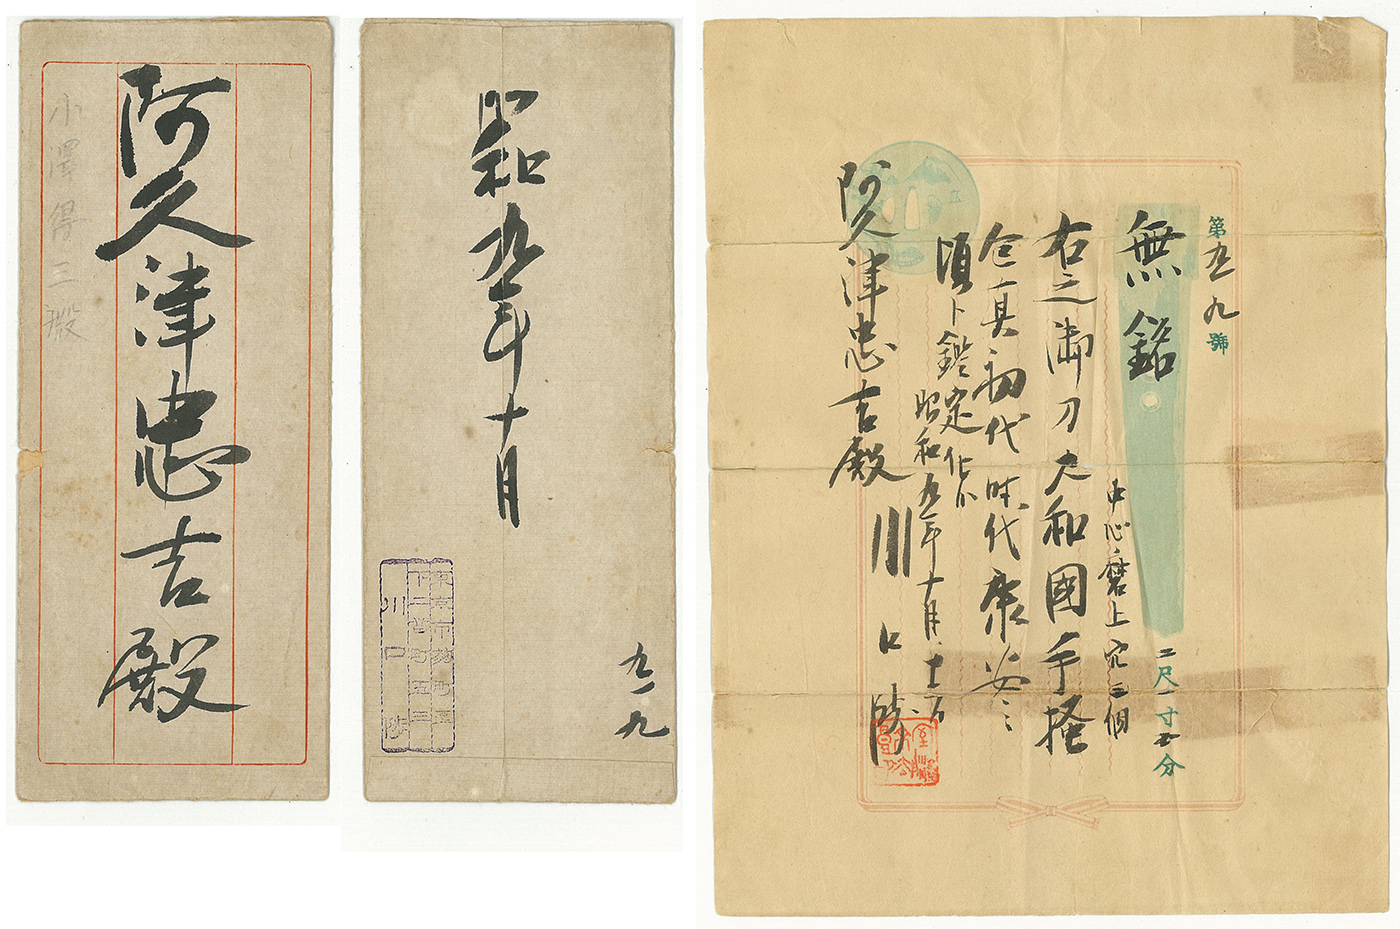 阿久津忠吉殿
小澤得三殿
昭和五年十月
九一九
川口陟
第五九號
無銘
中心磨上穴三個
二尺一寸五分
右之御刀大和國手掻
包真初代時代康安之
頃ト鑑定仕候
昭和五年十月十一日
川口陟
阿久津忠吉殿